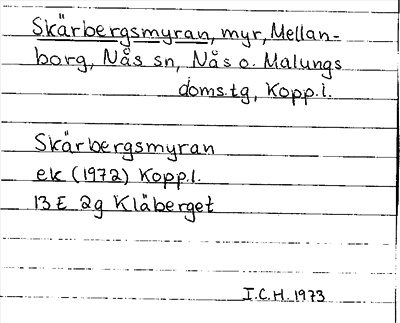 Skärbergsmyran, myr, Mellan-
borg, Nås sn, Nås o. Malungs
doms.tg, Kopp.l.
Skärbergsmyran
ek (1972) Kopp.l.
13 E 2g Klåberget
I.C.H. 1973